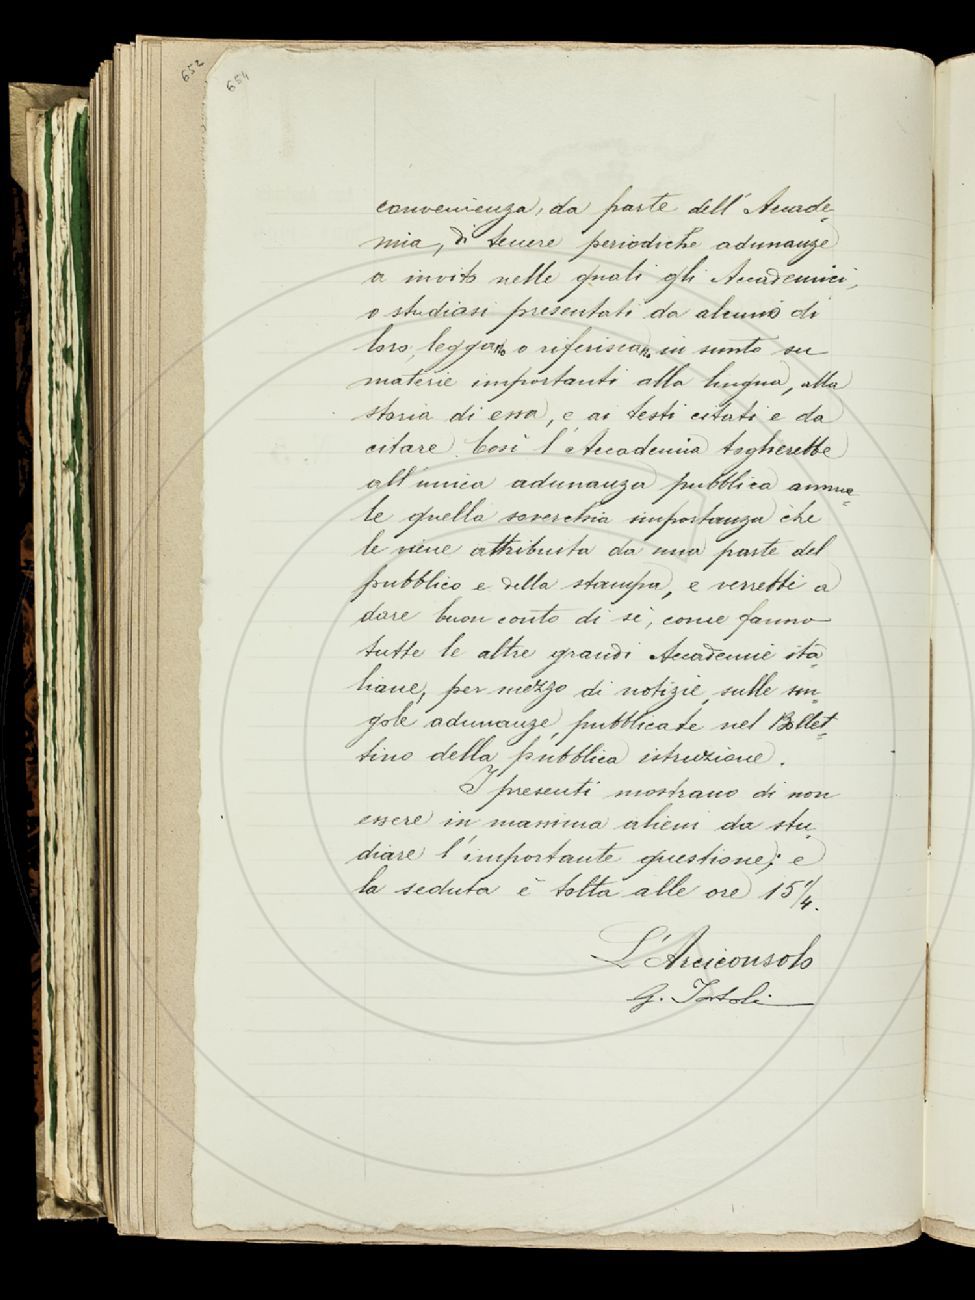 652
654
convenienza, da parte dell'Accade-
mia, di tenere periodiche adunanze
a invito nelle quali gli Accademici,
o studiosi presentati da alcuno di
loro, leggano o riferiscano in sunto su
materie importanti alla lingua, alla
storia di essa, e ai testi citati e da
citare. Così l'Accademia toglierebbe
all'unica adunanza pubblica annua-
le quella soverchia importanza che
le viene attribuita da una parte del
pubblico e della stampa, e verrebbe a
dare buon conto di sè, come fanno
tutte le altre grandi Accademie ita-
liane, per mezzo di notizie sulle sin-
gole adunanze, pubblicate nel Bollet-
tino della pubblica istruzione.
I presenti mostrano di non
essere in massima alieni da stu-
diare l'importante questione; e
la seduta è tolta alle ore 15 1/4.
L'Arciconsolo
G. Tortoli